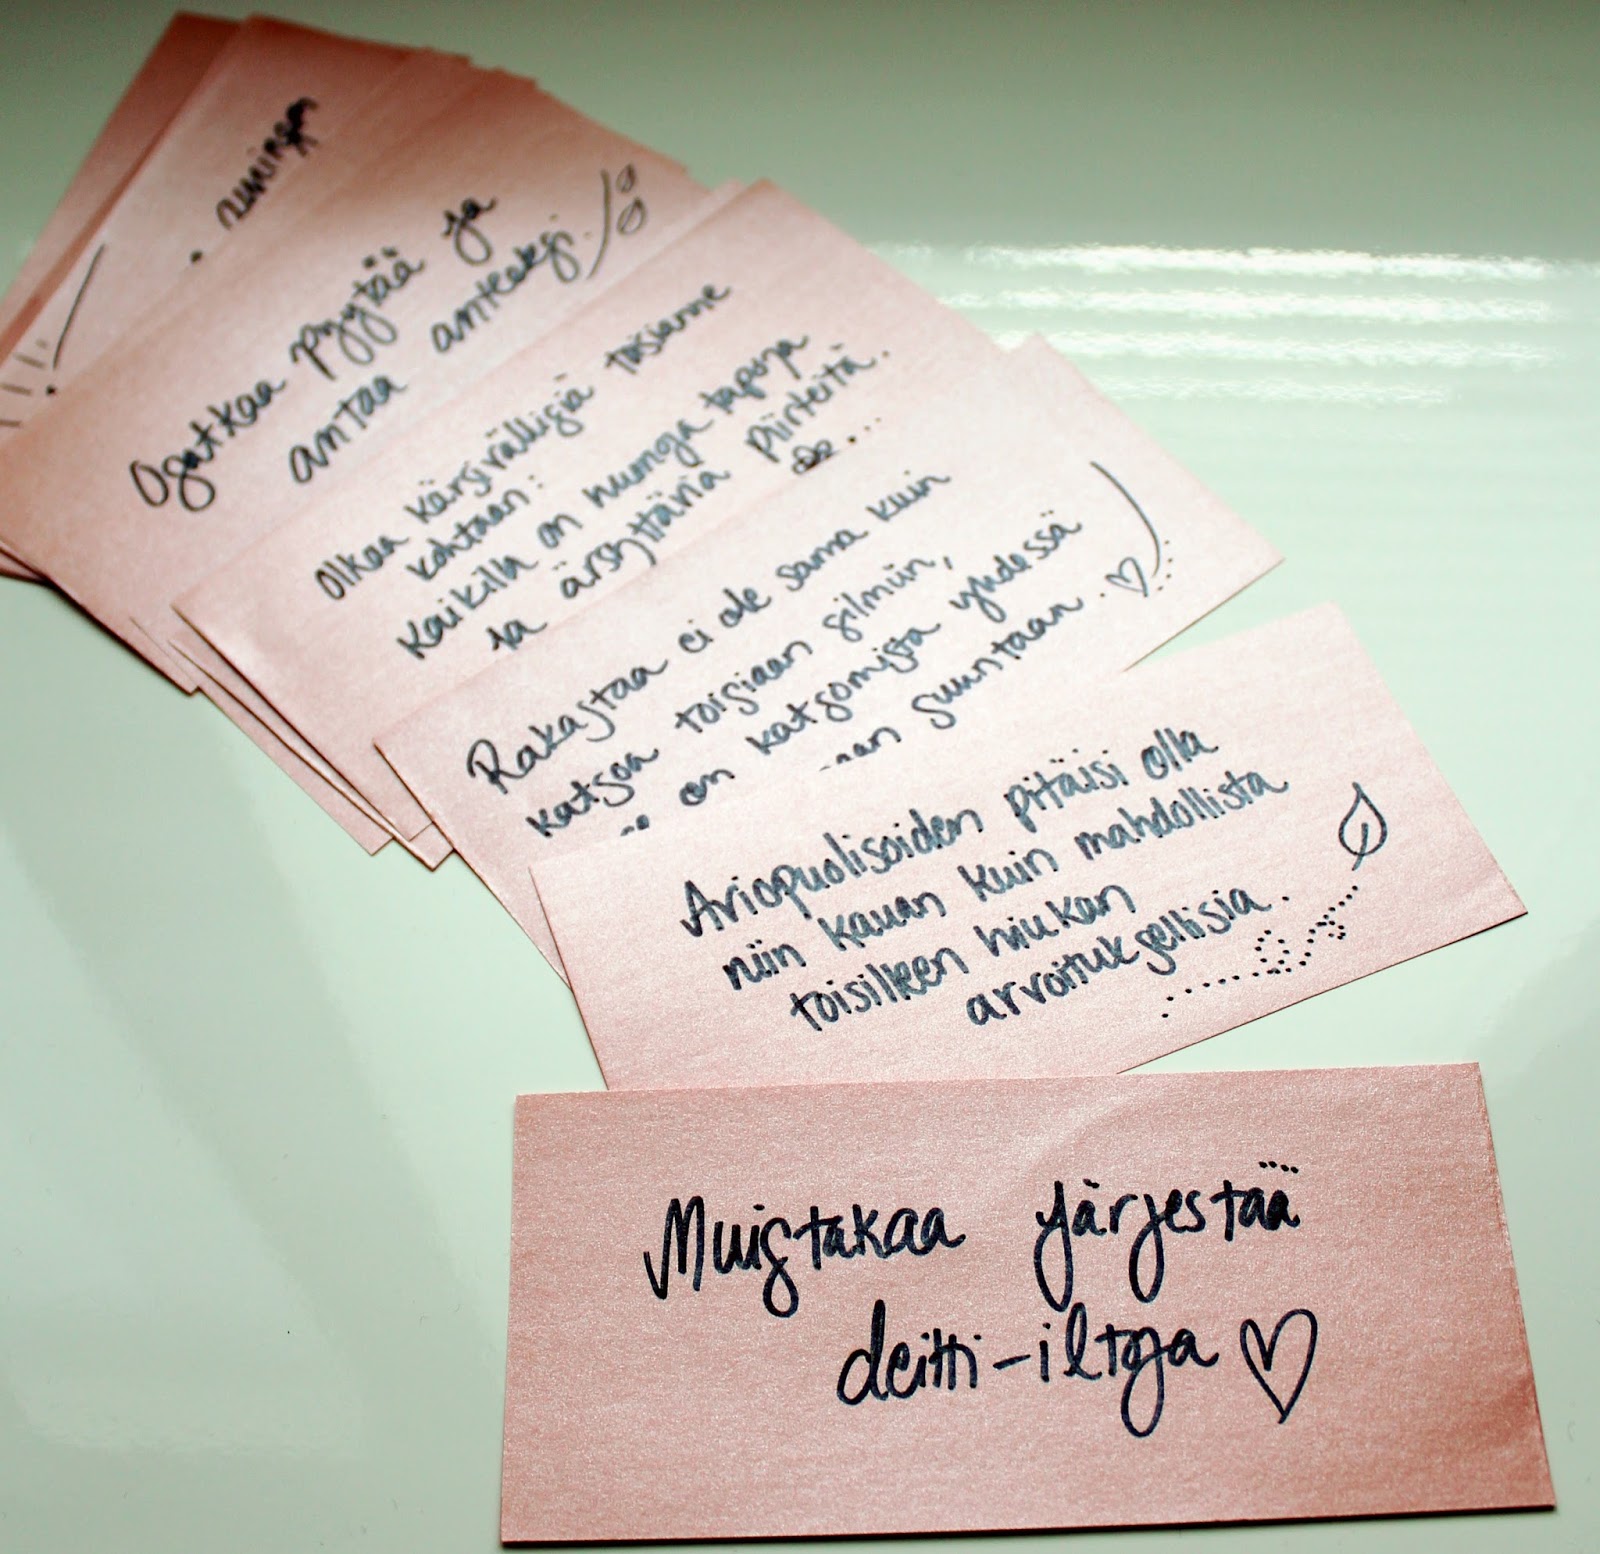 Muistakaa järjestää
deitti-iltoja
Aviopuolisoiden pitäisi olla
niin kauan kuin mahdollista
toisilleen hiukan
arvoituksellisia.
Rakastaa ei ole sama kuin
katsoa toisiaan silmiin,
se on katsomista yhdessä
suuntaan.
Olkaa kärsivällisiä toisianne
kohtaan:
Kaikilla on huonoja tapoja
ja ärsyttäviä piirteitä.
Osatkaa pyytää ja
antaa anteeksi.